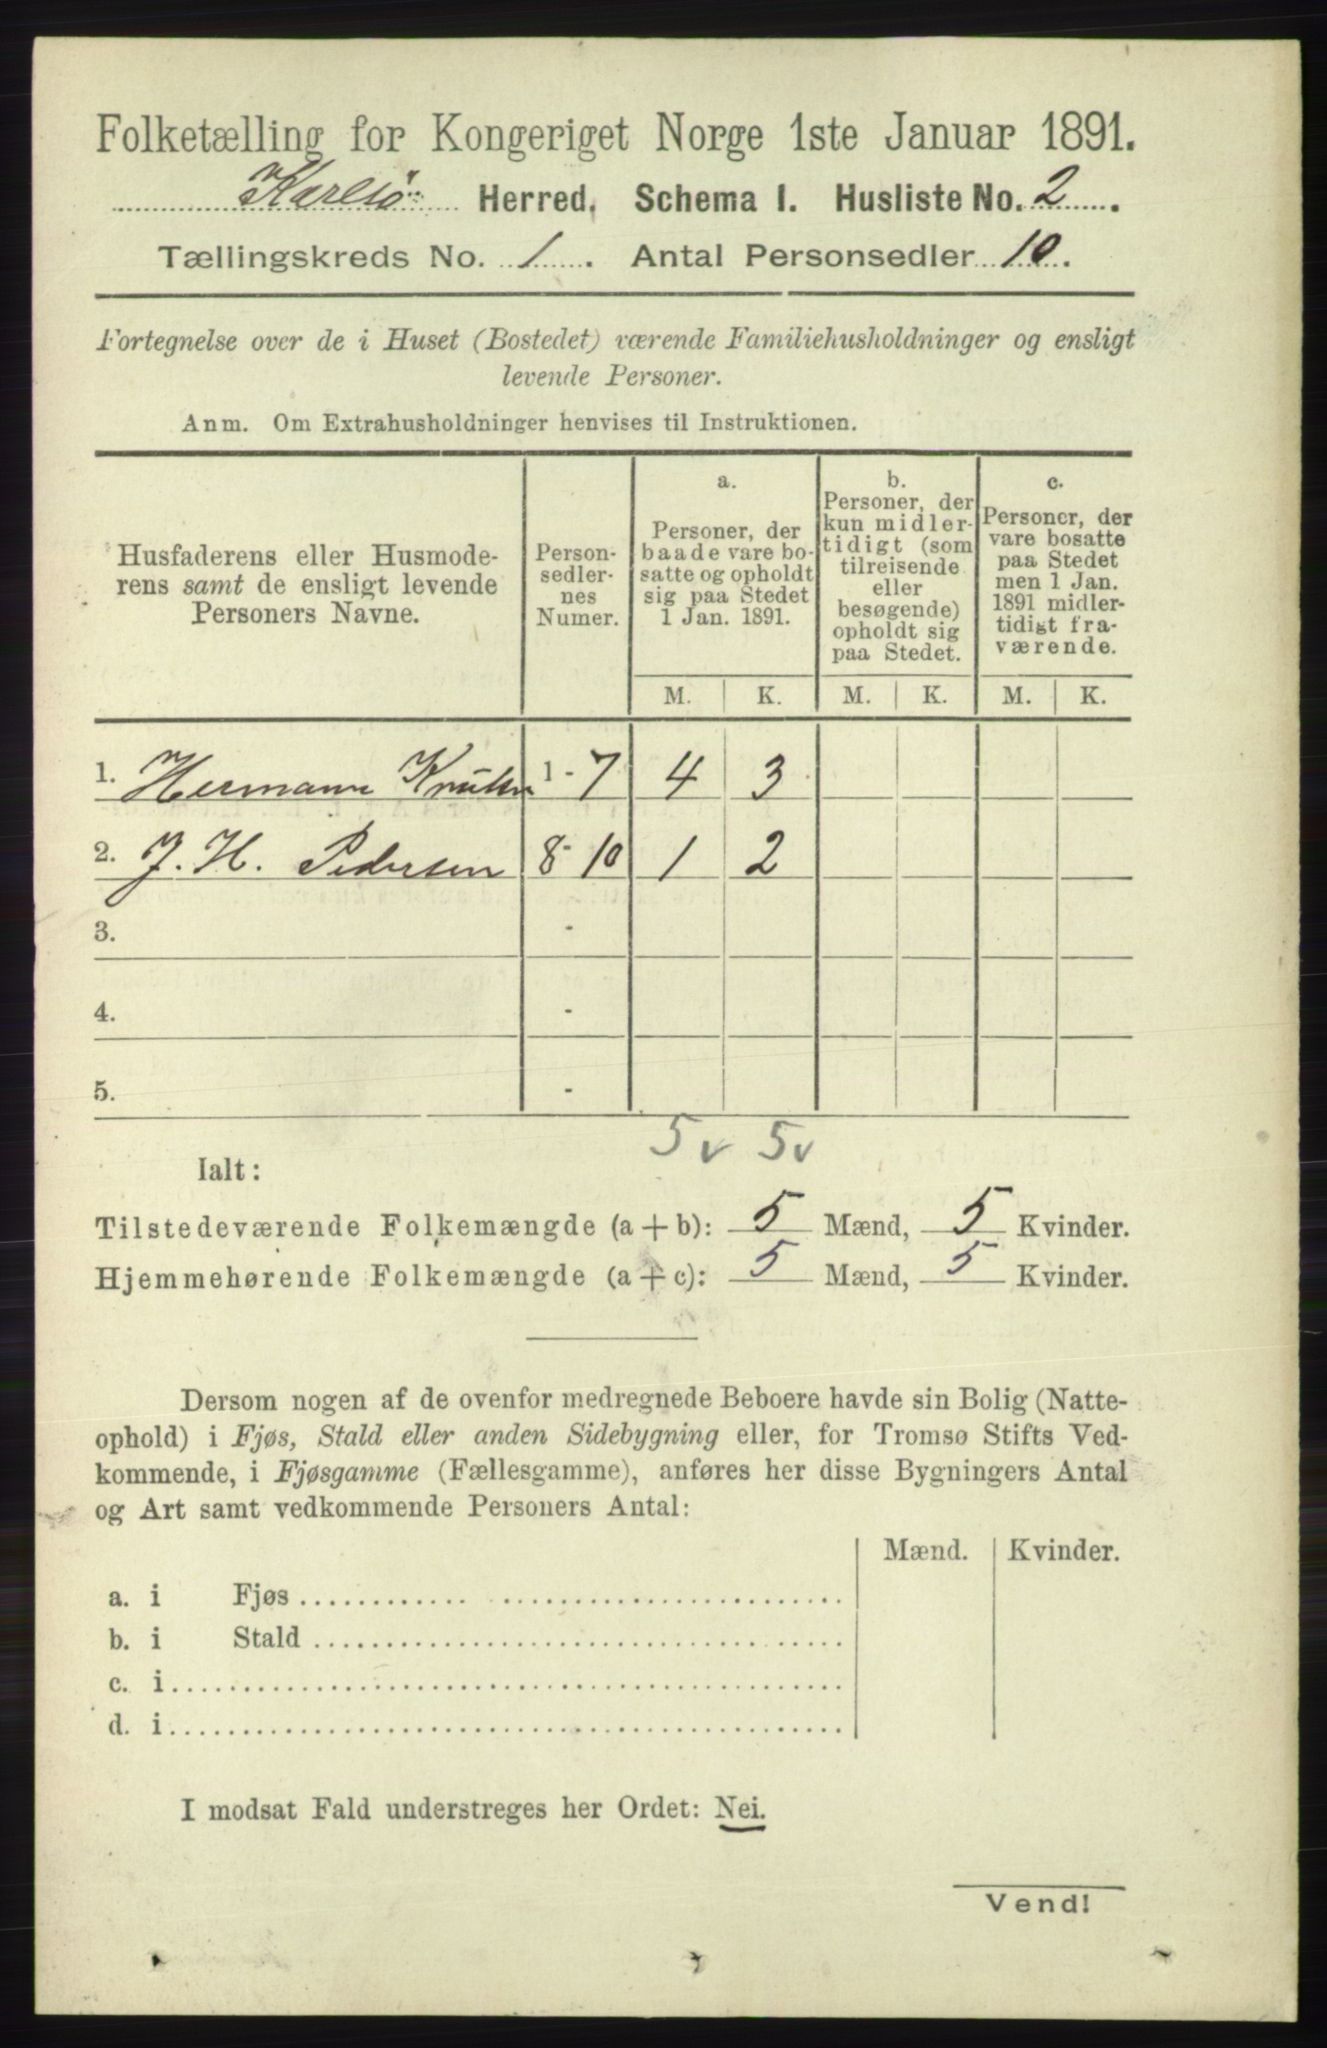 Folketælling for Kongeriget Norge 1ste Januar 1891.
Karlsø Herred. Schema I. Husliste No. 2.
Tællingskreds No. 1. Antal Personsedler 10.
Fortegnelse over de i Huset (Bostedet) værende Familiehusholdninger og ensligt
levende Personer.
Anm. Om Extrahusholdninger henvises til Instruktionen.
Husfaderens eller Husmode-
rens samt de ensligt levende
Personers Navne.
Person-
sedler-
nes
Numer.
a.
Personer, der
baade vare bo-
satte og opholdt
sig paa Stedet
1 Jan. 1891.
b.
Personer, der
kun midler-
tidigt (som
tilreisende
eller
besøgende)
opholdt sig
paa Stedet.
c.
Personer, der
vare bosatte
paa Stedet
men 1 Jan.
1891 midler-
tidigt fra-
værende.
M. K. M. K. M. K.
1. Hermann Knutsen 1-7 4 3
2. J. H. Pedersen 8-10 1 2
3. -
4. -
5. -
5v 5v
Ialt:
Tilstedeværende Folkemængde (a + b): 5 Mænd, 5 Kvinder.
Hjemmehørende Folkemængde (a + c): 5 Mænd, 5 Kvinder.
Dersom nogen af de ovenfor medregnede Beboere havde sin Bolig (Natte-
ophold) i Fjøs, Stald eller anden Sidebygning eller, for Tromsø Stifts Ved-
kommende, i Fjøsgamme (Fællesgamme), anføres her disse Bygningers Antal
og Art samt vedkommende Personers Antal:
Mænd. Kvinder.
a. i Fjøs
b. i Stald
c. i
d. i
I modsat Fald understreges her Ordet: Nei.
Vend!